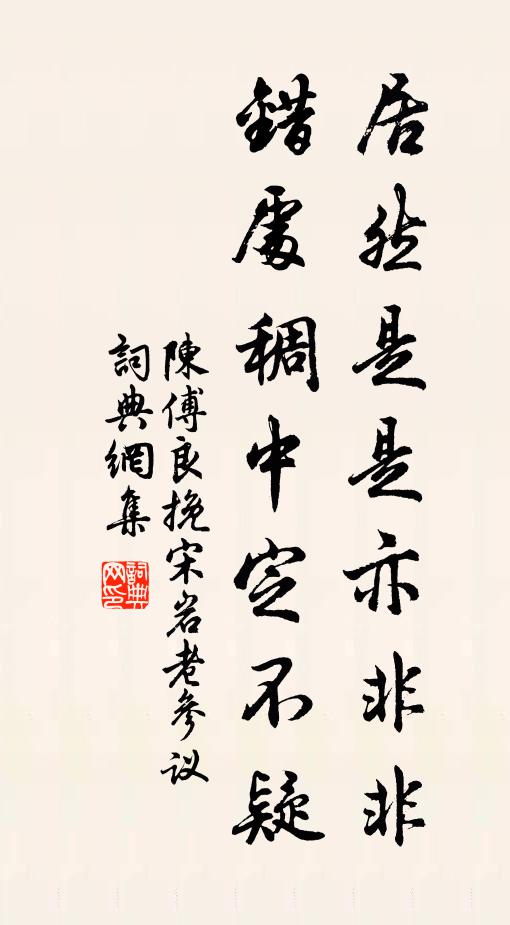 居然是是亦非非
錯處稠中定不疑
陳傅良挽宋岩老參议
詞典網集
詞典
网印